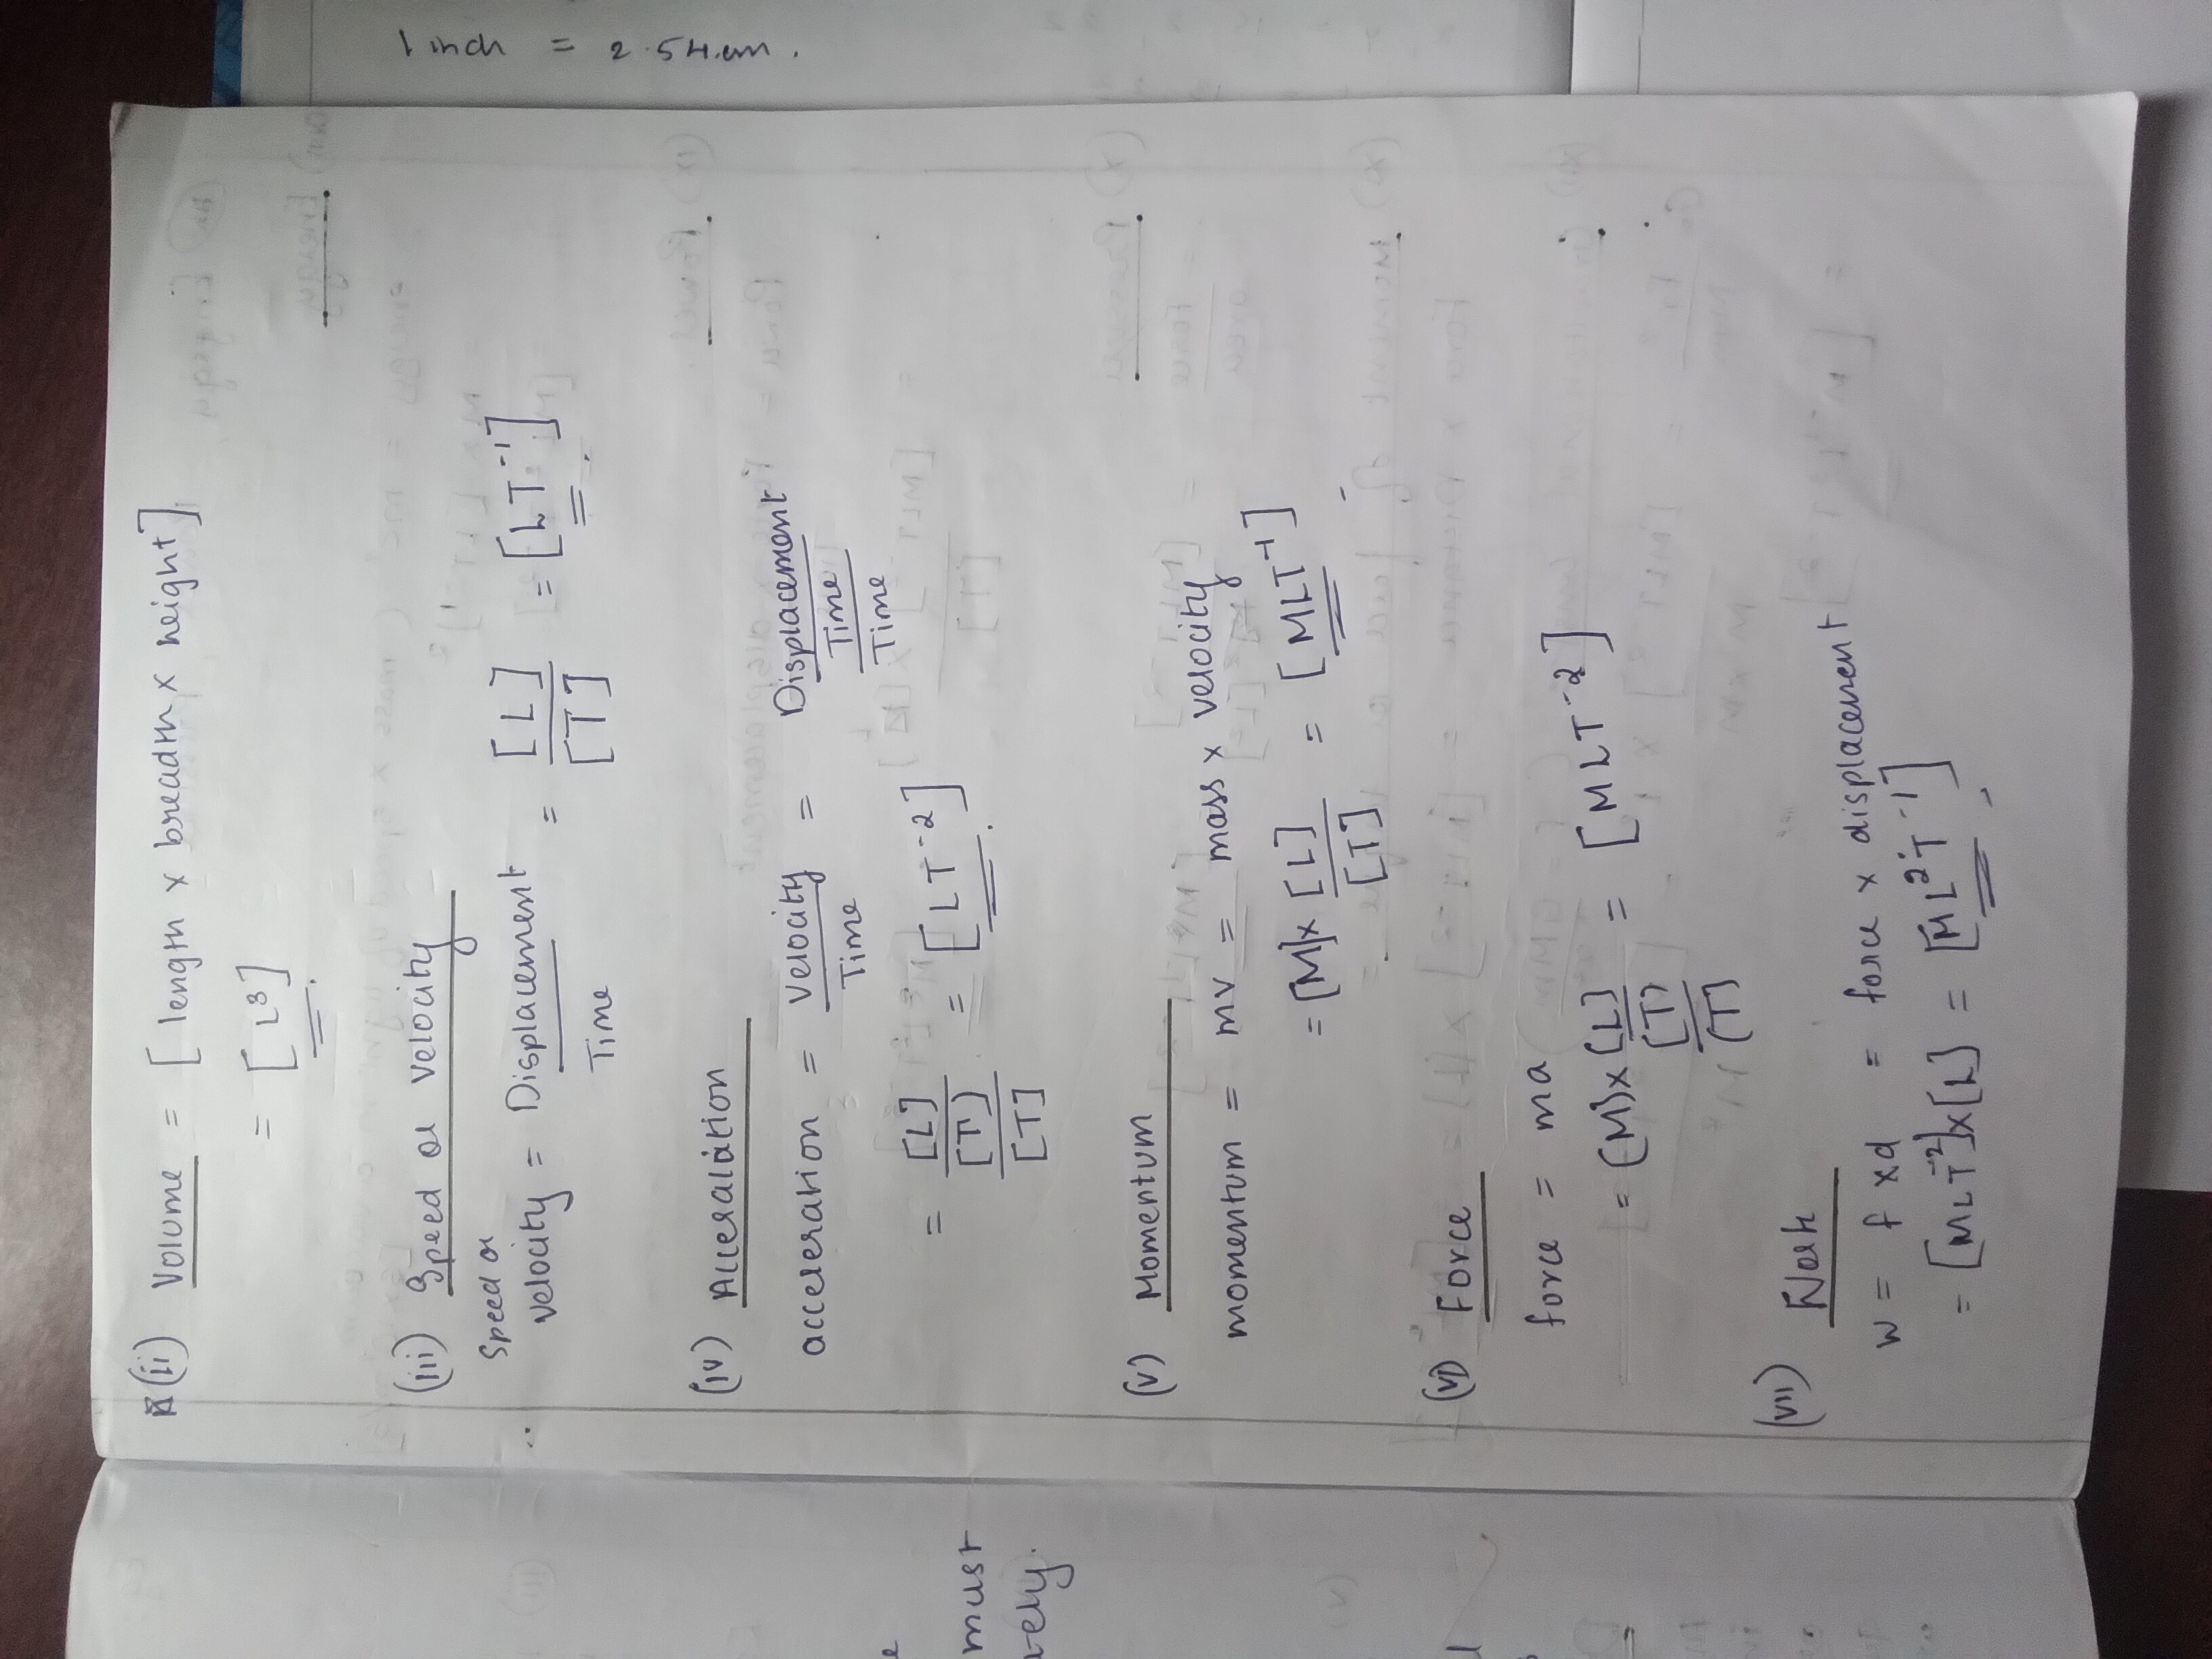 1 inch = 2.54.cm.
(ii) Volume = [length x breadth x height]
= [L³]
(iii) Speed or velocity
Speed or
velocity = Displacement / Time = [L] / [T] = [LT⁻¹]
(iv) Acceralation
acceleration = Velocity / Time = Displacement / Time / Time
= [L] / [T] / [T] = [LT⁻²]
(v) Momentum
momentum = mv = mass x velocity
= [M] x [L] / [T] = [MLT⁻¹]
(vi) Force
force = ma
= (M) x [L] / [T] / [T] = [MLT⁻²]
(vii) Work
w = f x d = force x displacement
= [MLT⁻²] x [L] = [ML²T⁻¹]
must
vely.